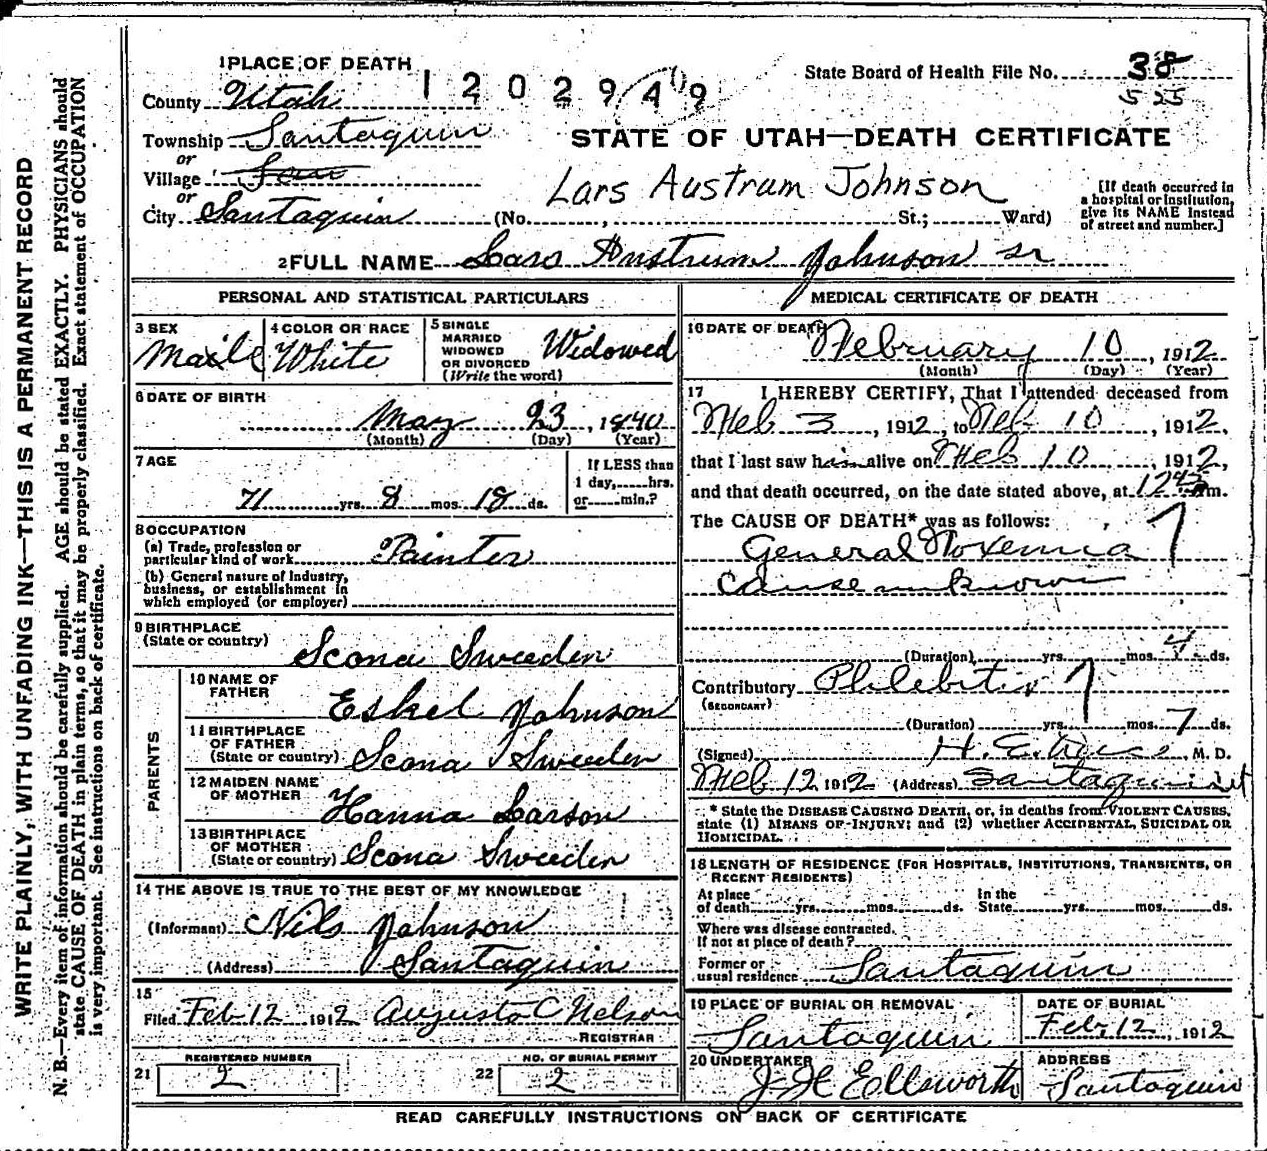 WRITE PLAINLY, WITH UNFADING INK—THIS IS A PERMANENT RECORD
N. B.—Every item of information should be carefully supplied. AGE should be stated EXACTLY. PHYSICIANS should
state CAUSE OF DEATH in plain terms, so that it may be properly classified. Exact statement of OCCUPATION
is very important. See instructions on back of certificate.
1 PLACE OF DEATH
County Utah
1202949
State Board of Health File No. 38
5 25
Township Santaquin
or
Village
or
City Santaquin
STATE OF UTAH—DEATH CERTIFICATE
Lars Austrum Johnson
(No. , St.; Ward)
[If death occurred in
a hospital or institution,
give its NAME instead
of street and number.]
2 FULL NAME Lars Austrum Johnson sr
PERSONAL AND STATISTICAL PARTICULARS
3 SEX
Maile
4 COLOR OR RACE
White
5 SINGLE
MARRIED
WIDOWED
OR DIVORCED
(Write the word)
Widowed
6 DATE OF BIRTH
May 23, 1840
(Month) (Day) (Year)
7 AGE
71 yrs. 8 mos. 18 ds.
If LESS than
1 day, hrs.
or min.?
8 OCCUPATION
(a) Trade, profession or
particular kind of work Painter
(b) General nature of Industry,
business, or establishment in
which employed (or employer)
9 BIRTHPLACE
(State or country) Scona Sweeden
PARENTS
10 NAME OF
FATHER Eskel Johnson
11 BIRTHPLACE
OF FATHER
(State or country) Scona Sweeden
12 MAIDEN NAME
OF MOTHER Hanna Larson
13 BIRTHPLACE
OF MOTHER
(State or country) Scona Sweeden
14 THE ABOVE IS TRUE TO THE BEST OF MY KNOWLEDGE
(Informant) Nils Johnson
(Address) Santaquin
15
Filed Feb 12 1912 Augusta C Nelson
REGISTRAR
REGISTERED NUMBER
21 2
NO. OF BURIAL PERMIT
22 2
MEDICAL CERTIFICATE OF DEATH
16 DATE OF DEATH
February 10, 1912
(Month) (Day) (Year)
17 I HEREBY CERTIFY, That I attended deceased from
Feb 3, 1912, to Feb 10, 1912,
that I last saw him alive on Feb 10, 1912,
and that death occurred, on the date stated above, at m.
The CAUSE OF DEATH* was as follows:
General Toxemia
cause unknown
(Duration) yrs. mos. 4 ds.
Contributory Phlebitis
(SECONDARY)
(Duration) yrs. mos. 7 ds.
(Signed) H. E. , M. D.
Feb 12 1912 (Address) Santaquin Ut
* State the DISEASE CAUSING DEATH, or, in deaths from VIOLENT CAUSES,
state (1) MEANS OF INJURY; and (2) whether ACCIDENTAL, SUICIDAL OR
HOMICIDAL.
18 LENGTH OF RESIDENCE (FOR HOSPITALS, INSTITUTIONS, TRANSIENTS, OR
RECENT RESIDENTS)
At place
of death yrs. mos. ds.
In the
State yrs. mos. ds.
Where was disease contracted,
If not at place of death?
Former or
usual residence Santaquin
19 PLACE OF BURIAL OR REMOVAL
Santaquin
DATE OF BURIAL
Feb. 12, 1912
20 UNDERTAKER
J H Ellsworth
ADDRESS
Santaquin
READ CAREFULLY INSTRUCTIONS ON BACK OF CERTIFICATE